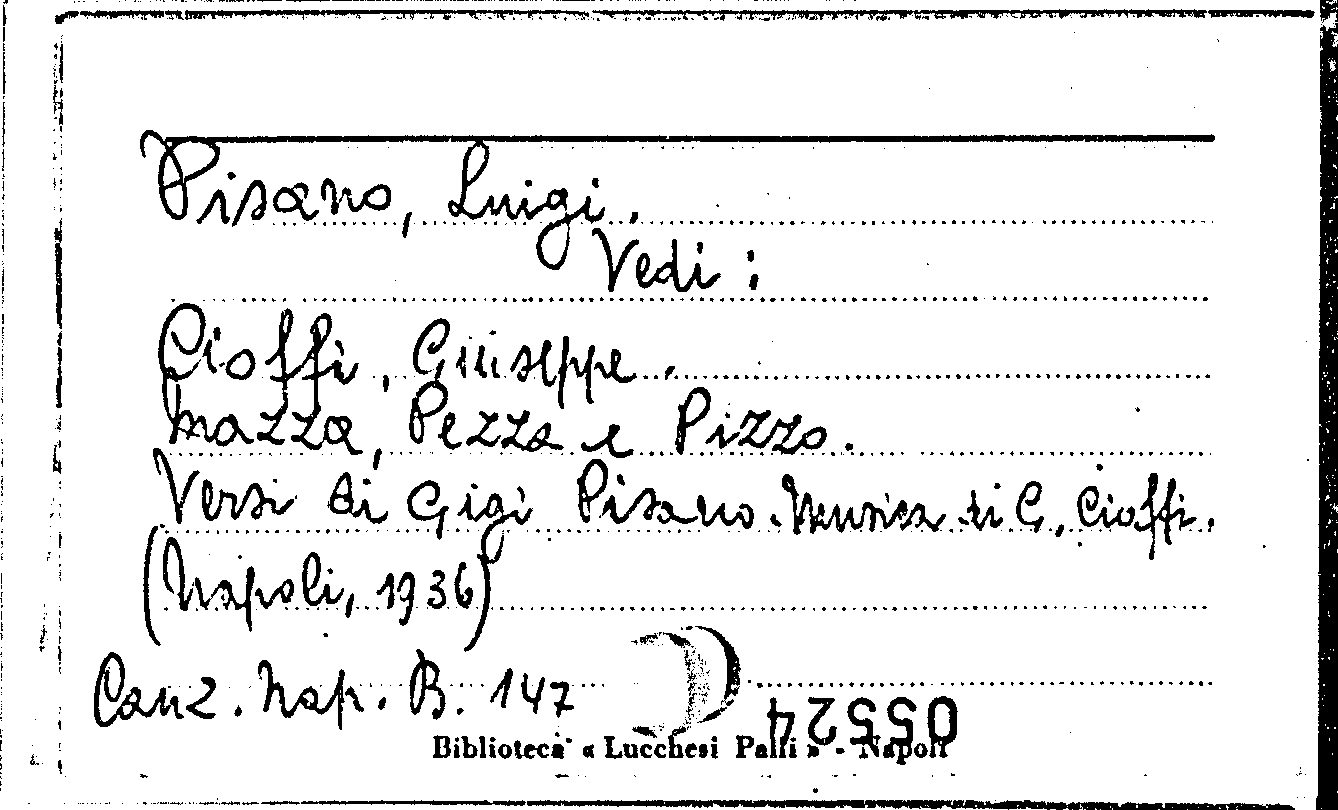 Pisano, Luigi.
Vedi :
Cioffi, Giuseppe.
Mazza, Pezza e Pizzo.
Versi di Gigi Pisano. Musica di G. Cioffi.
(Napoli, 1936)
Canz. Nap. B. 147
05524
Biblioteca « Lucchesi Palli » - Napoli